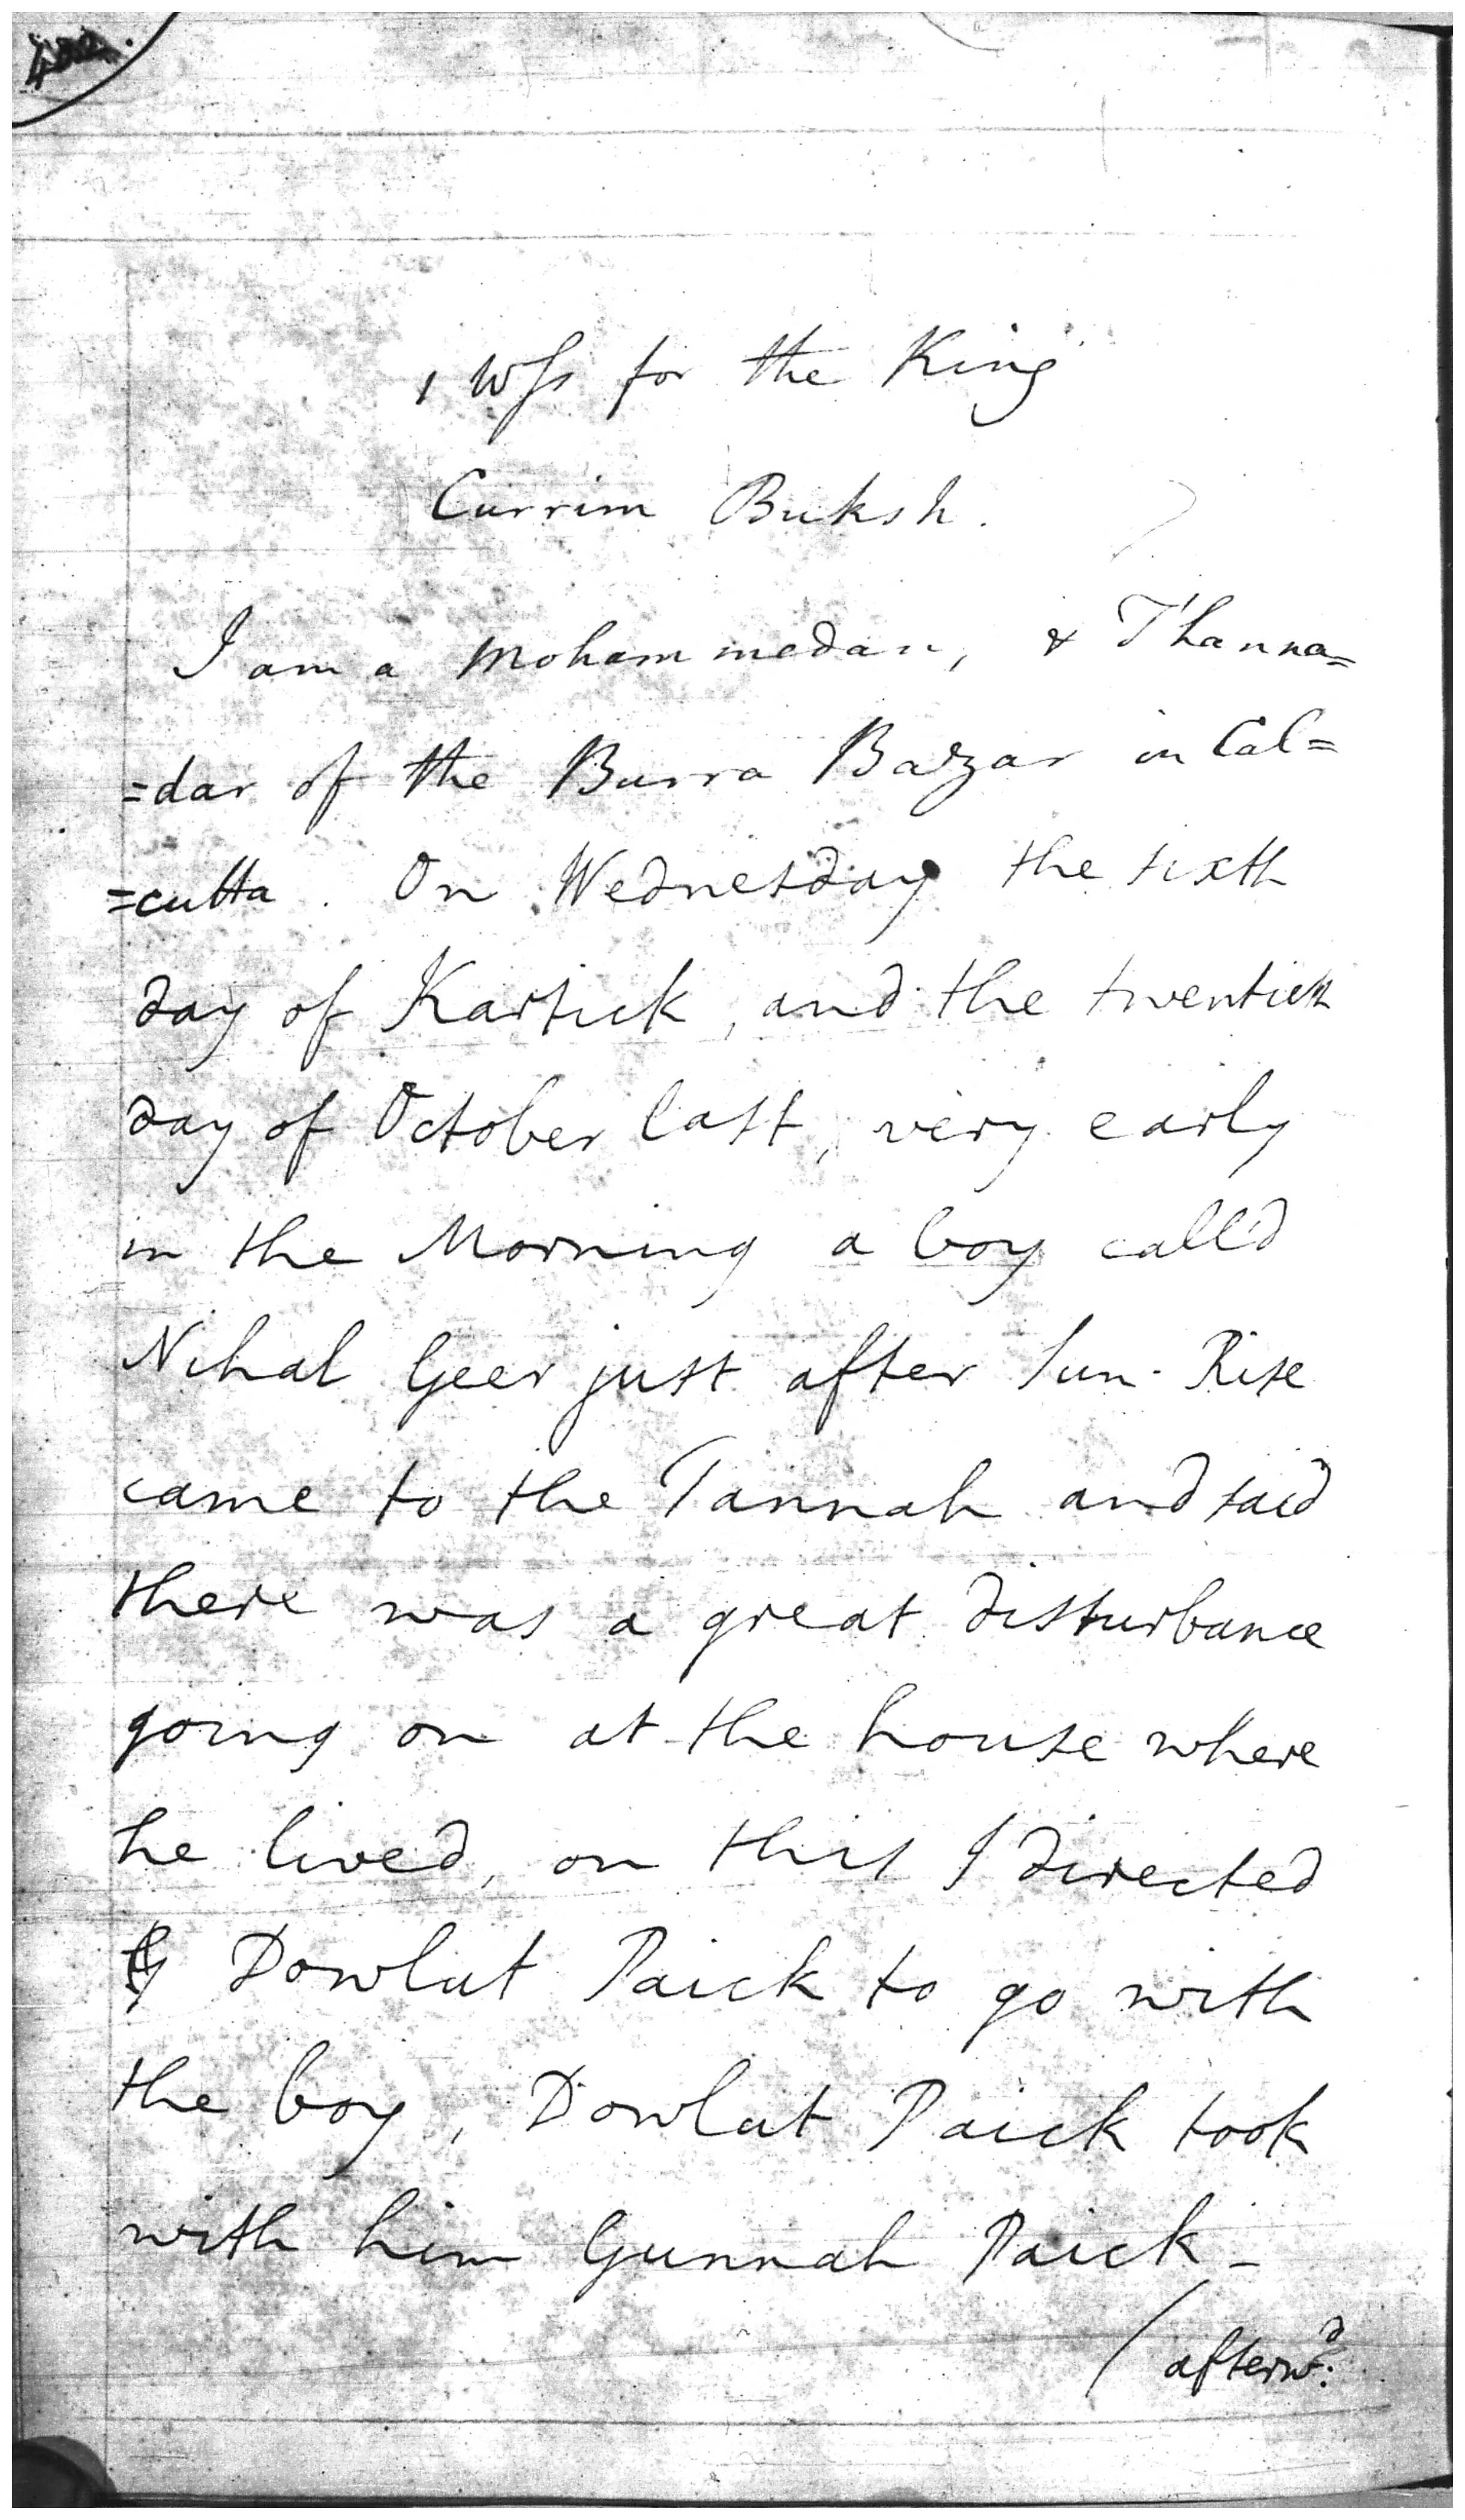 1 Wss for the King
Currim Buksh.
I am a Mohammedan, & Thanna=
=dar of the Burra Bazar in Cal=
=cutta. On Wednesday the sixth
day of Kartick, and the twentieth
day of October last, very early
in the Morning a boy call'd
Nihal Geer just after Sun-Rise
came to the Tannah and said
there was a great disturbance
going on at the house where
he lived, on this I directed
Dowlut Paick to go with
the boy, Dowlut Paick took
with him Gunnah Paick-
/ afterwd.